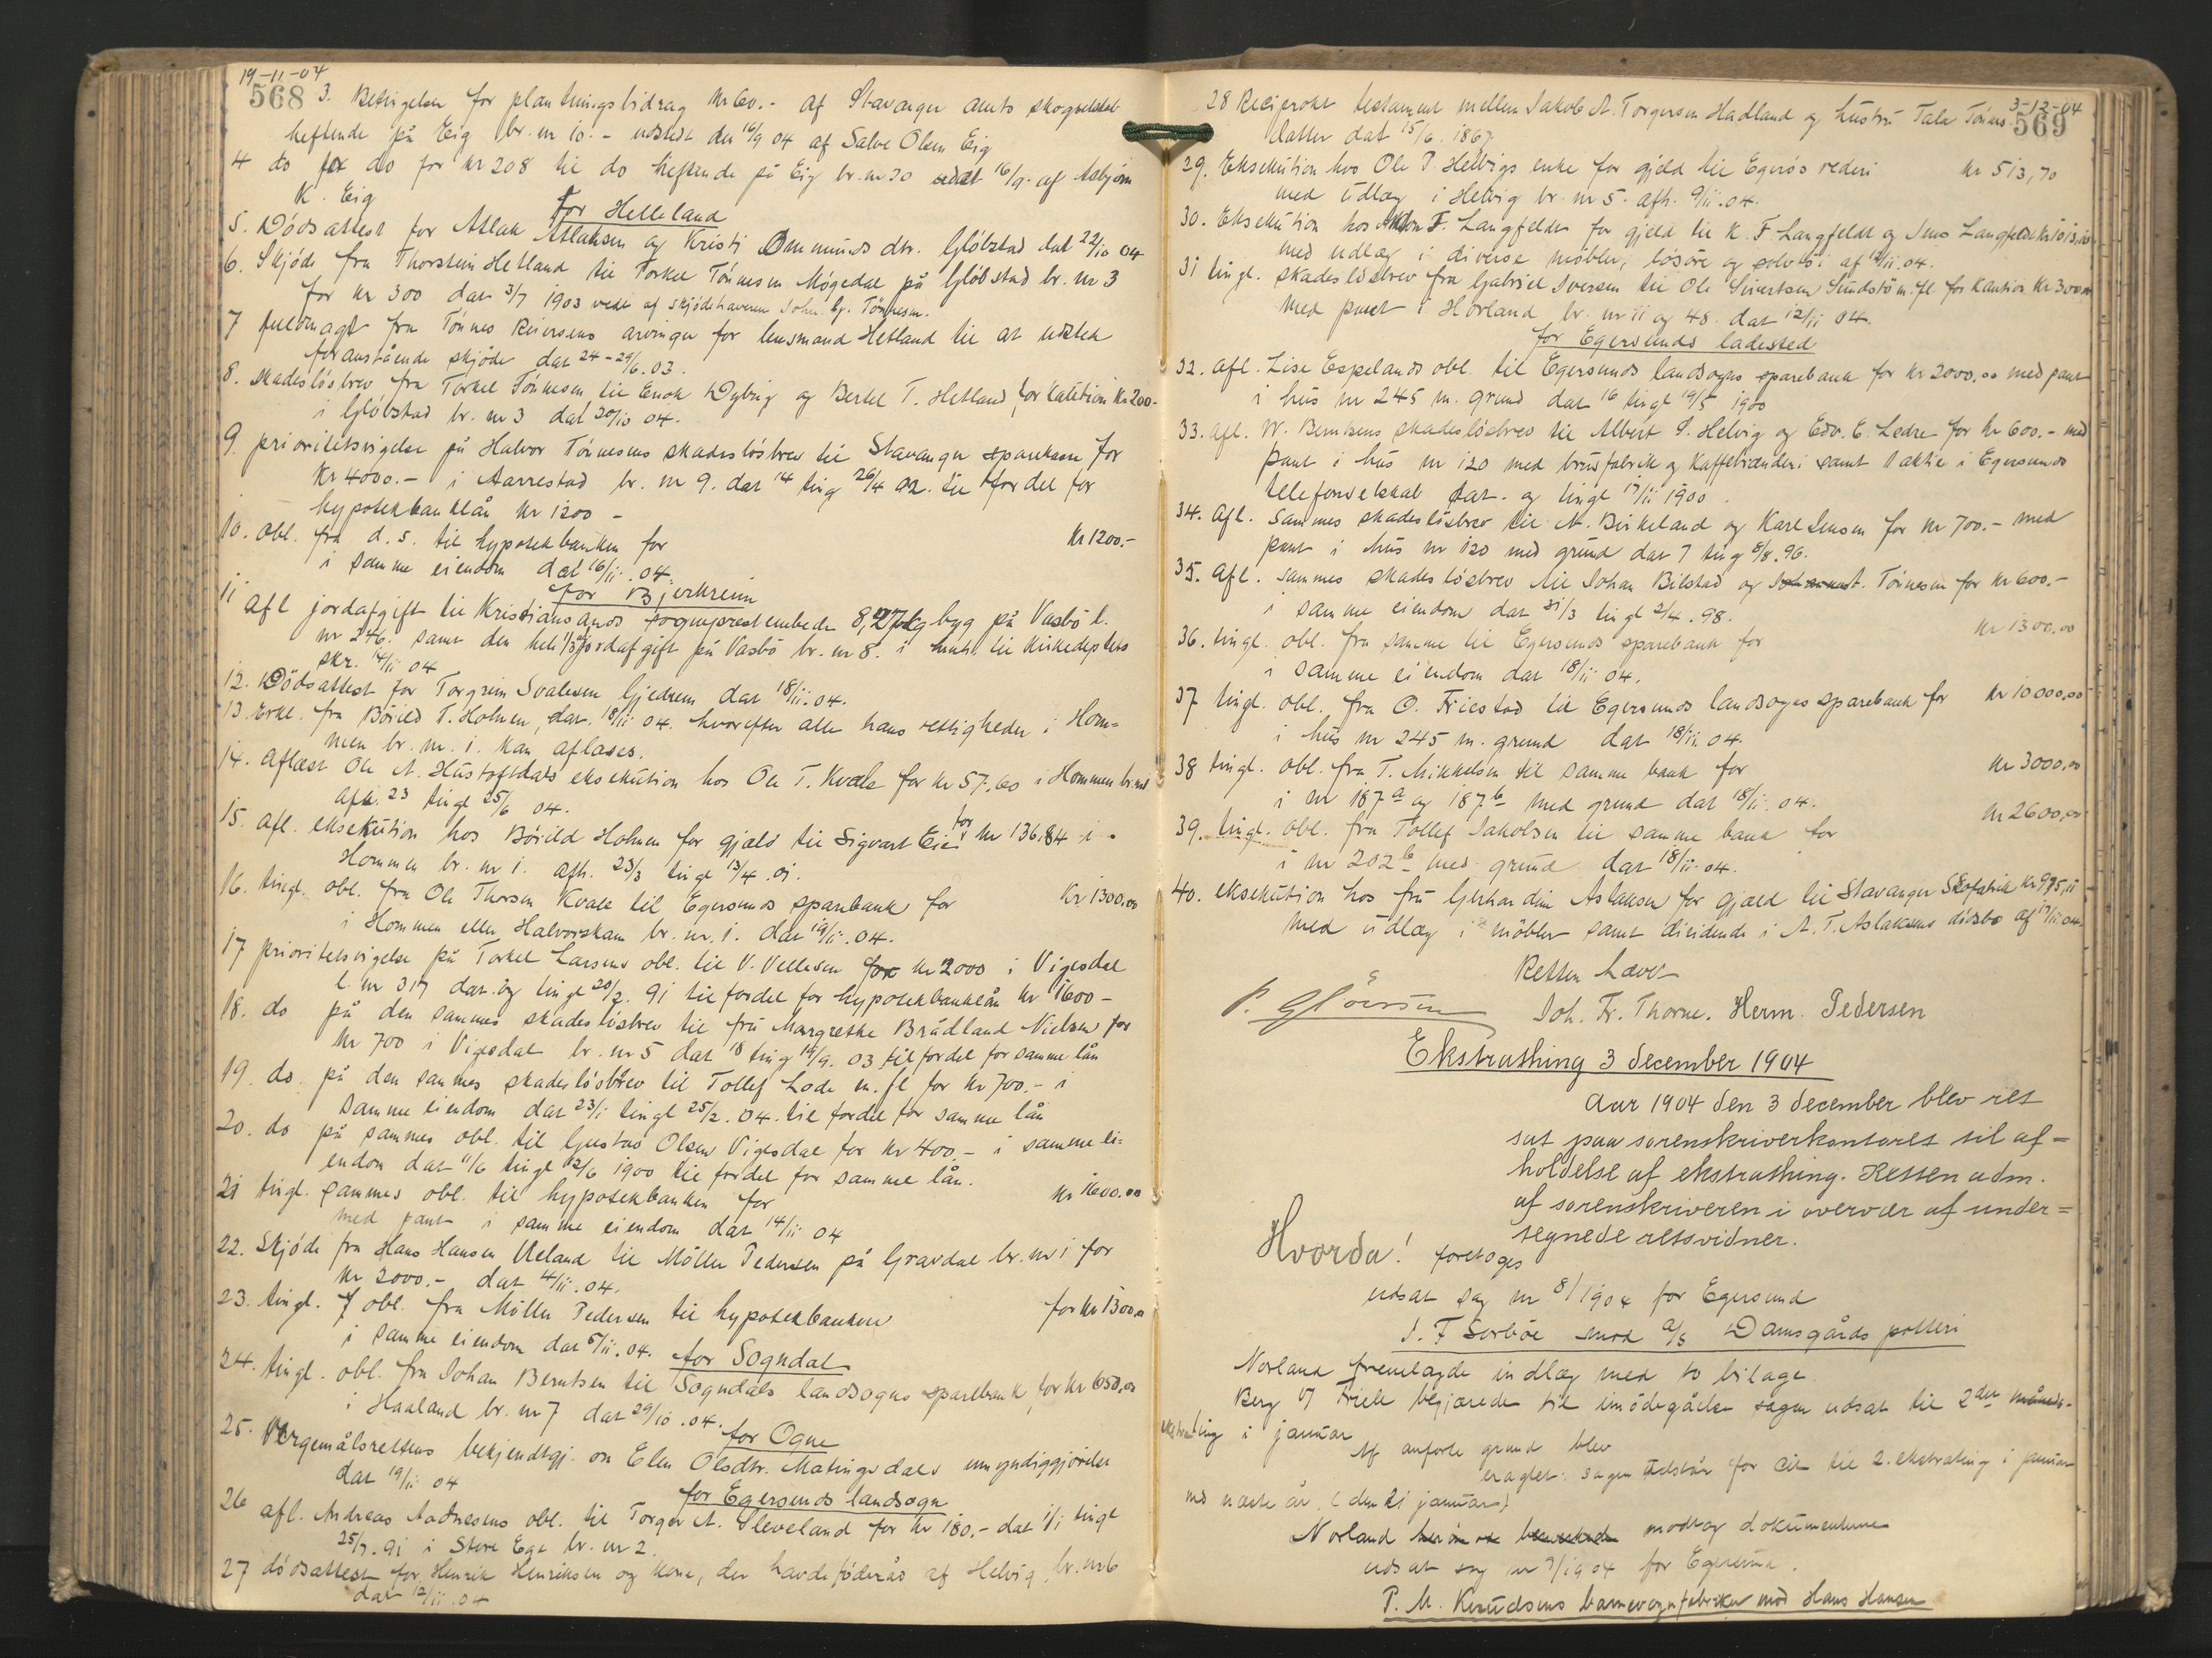 19-11-04
568
3. Betingelser for plantningsbidrag kr 60.- af Stavanger amts skogselskab
heftende på Eig br. nr 10. - udstedt den 16/9 04 af Salve Olsen Eig
4 do for do for kr 208 til do heftende på Eig br. nr 30 udst 16/9 af Asbjørn
K. Eig
for Helleland
5. Dödsattest for Atlak Atlaksen og Kristi Ommunds dtr. Glöbstad dat 22/10 04
6. Skjöde fra Thorstein Hetland til Torkel Tönnesen Mögedal på Glöbstad br. nr 3
for kr 300 dat 3/7 1903 af skjödehaveren Tönnesen.
7 fuldmagt fra Tönnes Reiersens arvinger for lensmand Hetland til at udstede
foranstående skjöde dat 24-29/6. 03.
8. skadeslösbrev fra Torkel Tönnesen til Enok Dybing og Bertel T. Hetland for kaution kr 200.-
i Glöbstad br. nr 3 dat 20/10 04.
9. prioritetsvigelse på Halvor Tönnesens skadeslösbrev til Stavanger sparekasse for
kr 4000.- i Aarrestad br. nr 9. dat 14 ting 26/4 92. til fordel for
hypotekbanklån kr 1200 -
10. obl. fra d. s. til hypotekbanken for kr 1200.-
i samme eiendom dat 16/11. 04.
for Bjerkreim
11 afl jordafgift til Kristiansands sogneprestembede 8,27 kg byg på Vasbö l.
nr 246. samt den hele jordafgift på Vasbö br. nr 8. i henh. til Kirkedeptets
skr. 14/11 04
12. Dödsattest for Torgrim Svalesen Gjedrem dat 18/11. 04.
13 Erkl. fra Börild T. Holmen, dat. 18/11 04. hvorefter alle hans rettigheder i Hom-
men br. nr. 1. kan aflæses.
14. aflæst Ole A. Hustoftdals eksekution hos Ole T. Kvale for kr 57,60 i Hommen br. nr 1
afh. 23 tingl 25/6 04.
15. afl. eksekution hos Börild Holmen for gjæld til Sigvart Eie for kr 136.84 i
Hommen br. nr 1. afh. 23/3 tingl 13/4. 01.
16. tingl. obl. fra Ole Thorsen Kvale til Egersunds sparebank for kr 1300,00
i Hommen eller Halvorskam br. nr. 1. dat 19/11. 04.
17 prioritetsvigelse på Torkel Larsens obl. til V. Vellesen for kr 2000 i Vigesdal
l. nr 317 dat. og tingl 20/2. 91 til fordel for hypotekbanklån kr 1600 -
18. do på den sammes skadeslösbrev til fru Margrethe Brådland Nielsen for
kr 700 i Vigesdal br. nr 5 dat 18 ting 19/9. 03 til fordel for samme lån
19. do. på den sammes skadeslösbrev til Tollef Lode m. fl for kr 700.- i
samme eiendom dat 23/1 tingl 25/2. 04. til fordel for samme lån
20. do på sammes obl. til Gustav Olsen Vigesdal for kr 400.- i samme ei-
endom dat 11/6 tingl 12/6 1900 til fordel for samme lån.
21 tingl. sammes obl. til hypotekbanken for kr 1600.00
med pant i samme eiendom dat 14/11 04
22. Skjöde fra Hans Hansen Ueland til Möller Pedersen på Gravdal br. nr 1 for
kr 2000.- dat 4/11. 04.
23. tingl. obl. fra Möller Pedersen til hypotekbanken for kr 1300,00
i samme eiendom dat 5/11. 04.
for Sogndal
24. tingl. obl. fra Johan Berntsen til Sogndals landsogns sparebank for kr 650,00
i Haaland br. nr 7 dat 29/10. 04.
for Ogne
25. Vergemålsrettens bekjendtgj. om Elen Olsdtr. Matingsdals umyndiggjörelse
dat 19/11 04
for Egersunds landsogn
26 afl. Andreas Aadnesens obl. til Torger A. Sleveland for kr 180.- dat 1/1 tingl
25/7. 91 i Store Ege br. nr 2.
27 dödsattest for Henrik Henriksen og kone, der havde föderåd af Helvig br. nr 6
dat 12/11. 04
3-12-04
569
28 Reciprokt testament mellem Jakob A. Torgersen Hadland og hustru Tala Tönnes-
datter dat 15/6. 1867
29. Eksekution hos Ole P. Helvigs enke for gjeld til Egerös rederi kr 513,70
med udlæg i Helvig br. nr 5. afh. 9/11. 04.
30. Eksekution hos F. Langfeldt for gjeld til K. F Langfeldt og Jens Langfeldt
med udlæg i diverse möbler, lösöre og sölvtöi af 12/11. 04.
31 tingl. skadeslösbrev fra Gabriel Iversen til Ole Sivertsen Sundstö m. fl. for kaution kr 3000
med pant i Hovland br. nr 11 og 48. dat 12/11 04.
for Egersunds ladested
32. afl. Lise Espelands obl. til Egersunds landsogns sparebank for kr 2000,00 med pant
i hus nr 245 m. grund dat 16 tingl 19/5 1900
33. afl. W. Berntsens skadeslösbrev til Albert S. Helvig og Edv. E. Ledre for kr 600.- med
pant i hus nr 120 med brusfabrik og kaffebrænderi samt 1 aktie i Egersunds
telefonselskab dat. og tingl 17/11 1900.
34. afl. sammes skadeslösbrev til A. Birkeland og Karl Jensen for kr 700.- med
pant i hus nr 120 med grund dat 7 ting 8/8. 96.
35. afl. sammes skadeslösbrev til Johan Bilstad og Tönnesen for kr 600.-
i samme eiendom dat 31/3 tingl 2/4. 98.
36. tingl. obl. fra samme til Egersunds sparebank for kr 1300,00
i samme eiendom dat 18/11 04.
37 tingl. obl. fra O. Friestad til Egersunds landsogns sparebank for kr 10000,00
i hus nr 245 m. grund dat 18/11. 04.
38 tingl. obl. fra T. Mikkelsen til samme bank for kr 3000,00
i nr 187 a og 187 b med grund dat 18/11. 04.
39. tingl. obl. fra Tollef Jakobsen til samme bank for kr 2600,00
i nr 202 b med grund dat 18/11. 04.
40. eksekution hos fru Aslaksen for gjæld til Stavanger Skofabrik kr 975,11
med udlæg i möbler samt dividende i A. T. Aslaksens dödsbo af 17/11 04.
Retten hævet
Joh. Fr. Thorne. Herm. Pedersen
Ekstrathing 3 december 1904
Aar 1904 den 3 december blev ret
sat paa sorenskriverkontoret til af-
holdelse af ekstrathing. Retten adm.
af sorenskriveren i overvær af under-
tegnede retsvidner.
Hvorda! foretoges
udsat sag nr 8/1904 for Egersund
J. F Sørböe mod A/S Damsgårds potteri
Norland fremlagde indlæg med to bilage.
Berg Friele begjærede til imödegåelse sagen udsat til 2den måneds-
ekstrating i januar
Af anförte grund blev
eragtet: sagen udstår for cit til 2. ekstrating i januar
md næste år. (den 21 januar)
Norland modtog dokumenterne
udsat sag nr 9/1904 for Egersund.
P. M. Knudsens barnevognfabrikker mod Hans Hansen